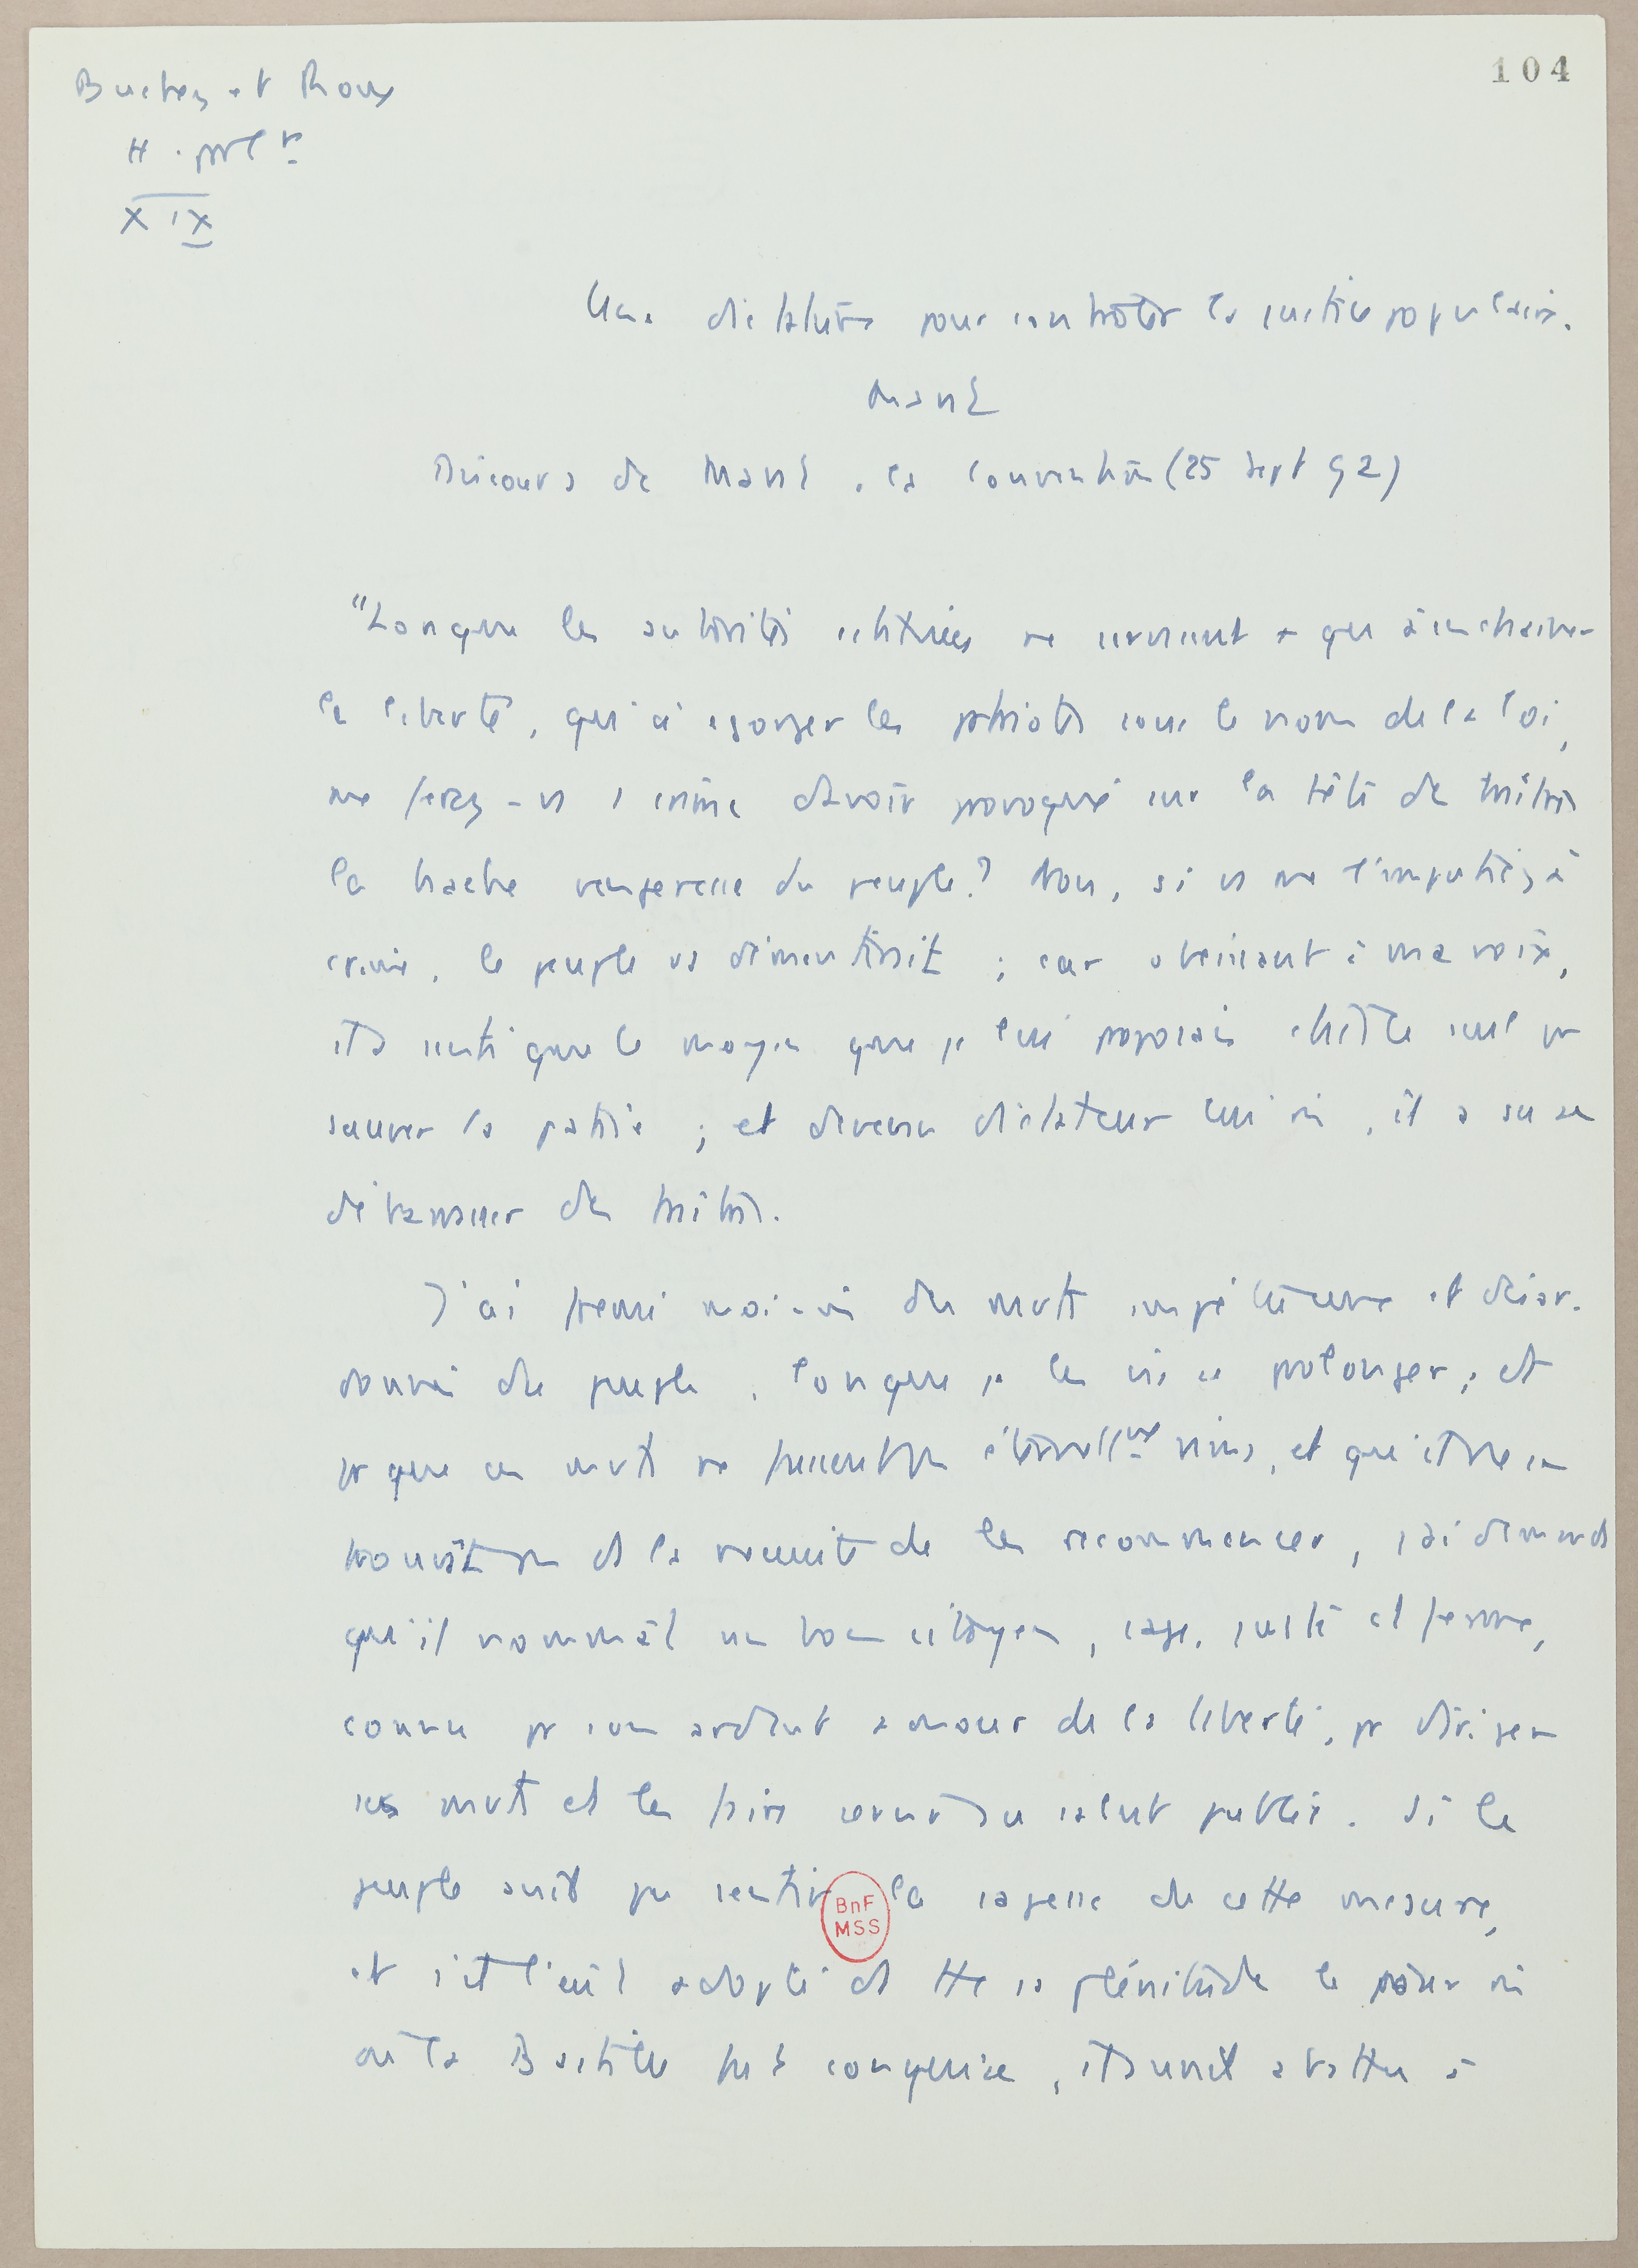 104
Buchez et Roux
H. parlre
XIX
Une dictature pour contrôler la justice populaire.
Marat
Discours de Marat à la Convention (25 sept 92)
"Lorsque les autorités cstituées ne servaient + qu'à enchaîner
la liberté, qu'à égorger les patriotes sous le nom de la loi,
me ferez-vs 1 crime d'avoir provoqué sur la tête de traîtres
la hache vengeresse du peuple? Non, si vs me l'imputiez à
crime, le peuple vs démentirait ; car obéissant à ma voix,
il a senti que le moyen que je lui proposais était le seul pr
sauver la patrie ; et devenu dictateur lui mê, il a su se
débarrasser des traîtres.
J'ai frémi moi-mê des mvts impétueux et désor-
donnés du peuple, lorsque je les vis se prolonger ; et
pr que ces mvts ne fussent pas éternellmt vains, et qu'il ne se
trouvât pas ds la nécessité de les recommencer, j'ai demandé
qu'il nommât un bon citoyen, sage, juste et ferme,
connu pr son ardent amour de la liberté, pr diriger
ses mvts et les faire servir au salut public. Si le
peuple avait pu sentir la sagesse de cette mesure,
et s'il l'eût adoptée ds tte sa plénitude le jour mê
où la Bastille fut conquise, il aurait abattu à
BnF
MSS